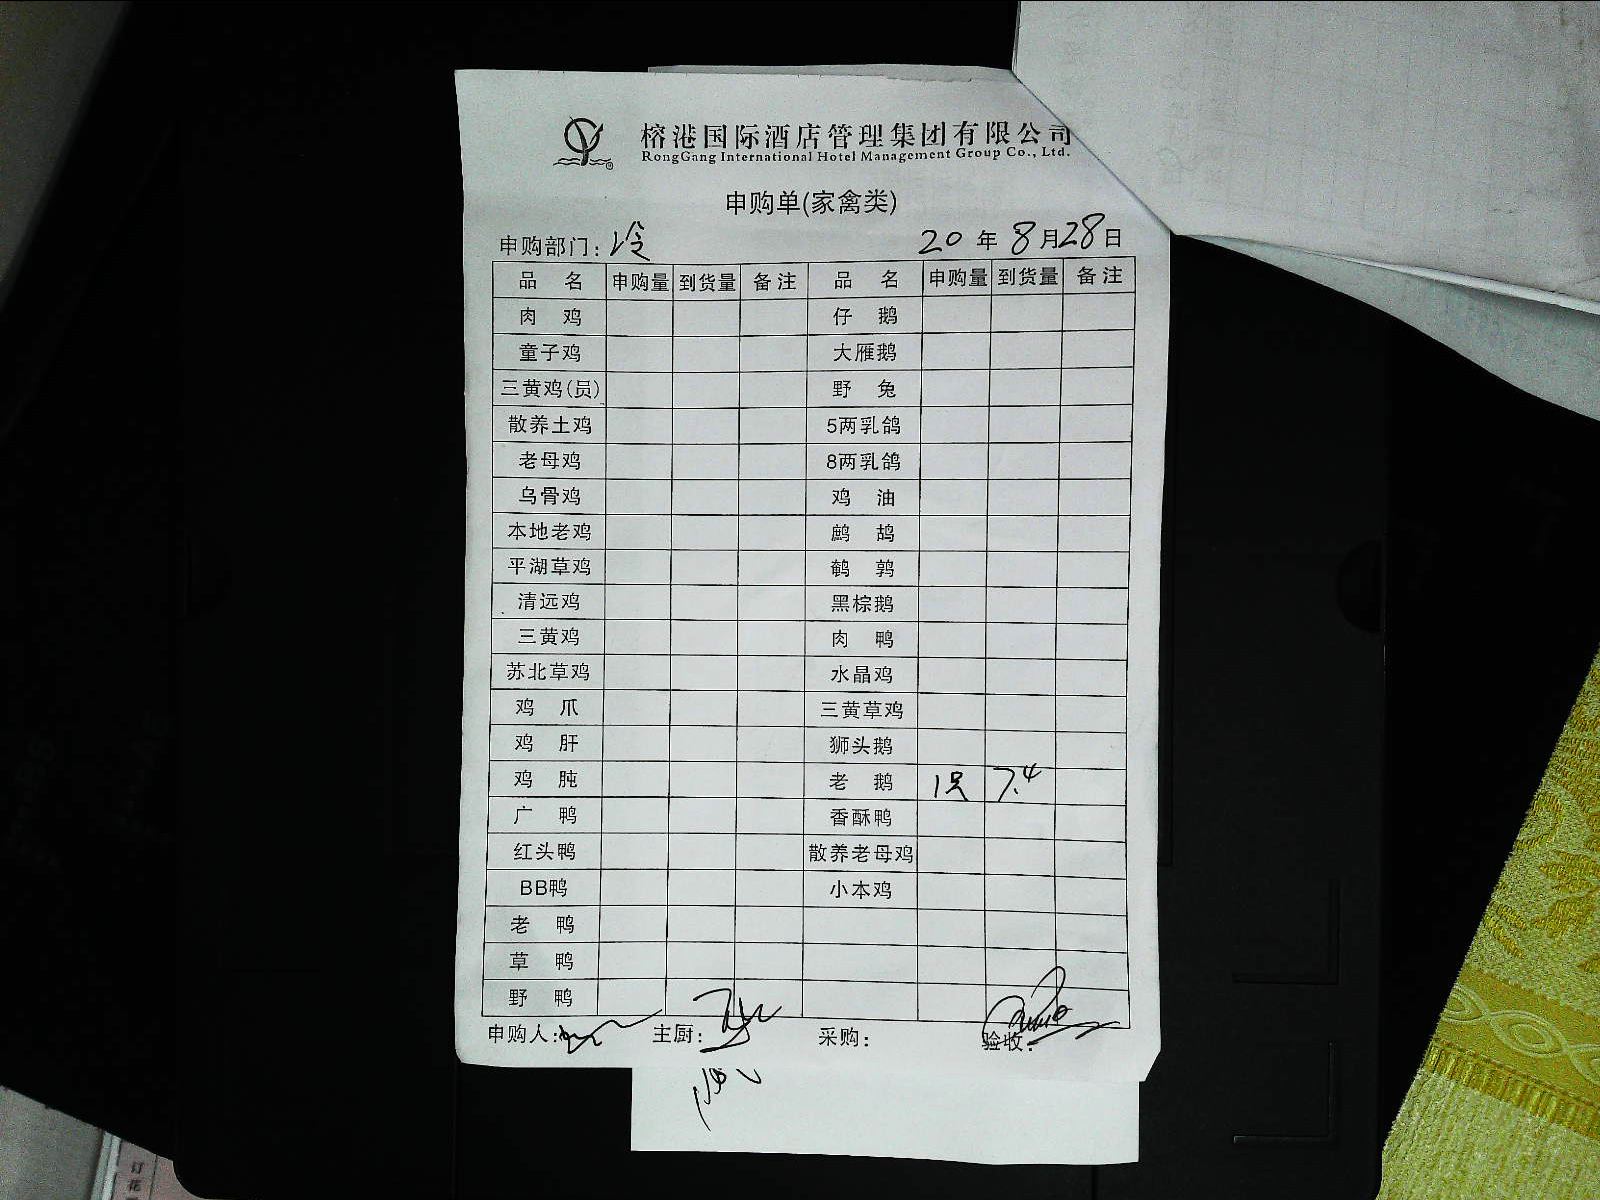 榕港国际酒店管理集团有限公司
RongGang International Hotel Management Group Co., Ltd.
申购单(家禽类)
申购部门: 冷 20 年 8 月 28 日
品 名 申购量 到货量 备注 品 名 申购量 到货量 备注
肉 鸡 仔 鹅
童子鸡 大雁鹅
三黄鸡(员) 野 兔
散养土鸡 5两乳鸽
老母鸡 8两乳鸽
乌骨鸡 鸡 油
本地老鸡 鹧 鸪
平湖草鸡 鹌 鹑
清远鸡 黑棕鹅
三黄鸡 肉 鸭
苏北草鸡 水晶鸡
鸡 爪 三黄草鸡
鸡 肝 狮头鹅
鸡 肫 老 鹅 1只 7.4
广 鸭 香酥鸭
红头鸭 散养老母鸡
BB鸭 小本鸡
老 鸭
草 鸭
野 鸭
申购人: 主厨: 采购: 验收:
订
花